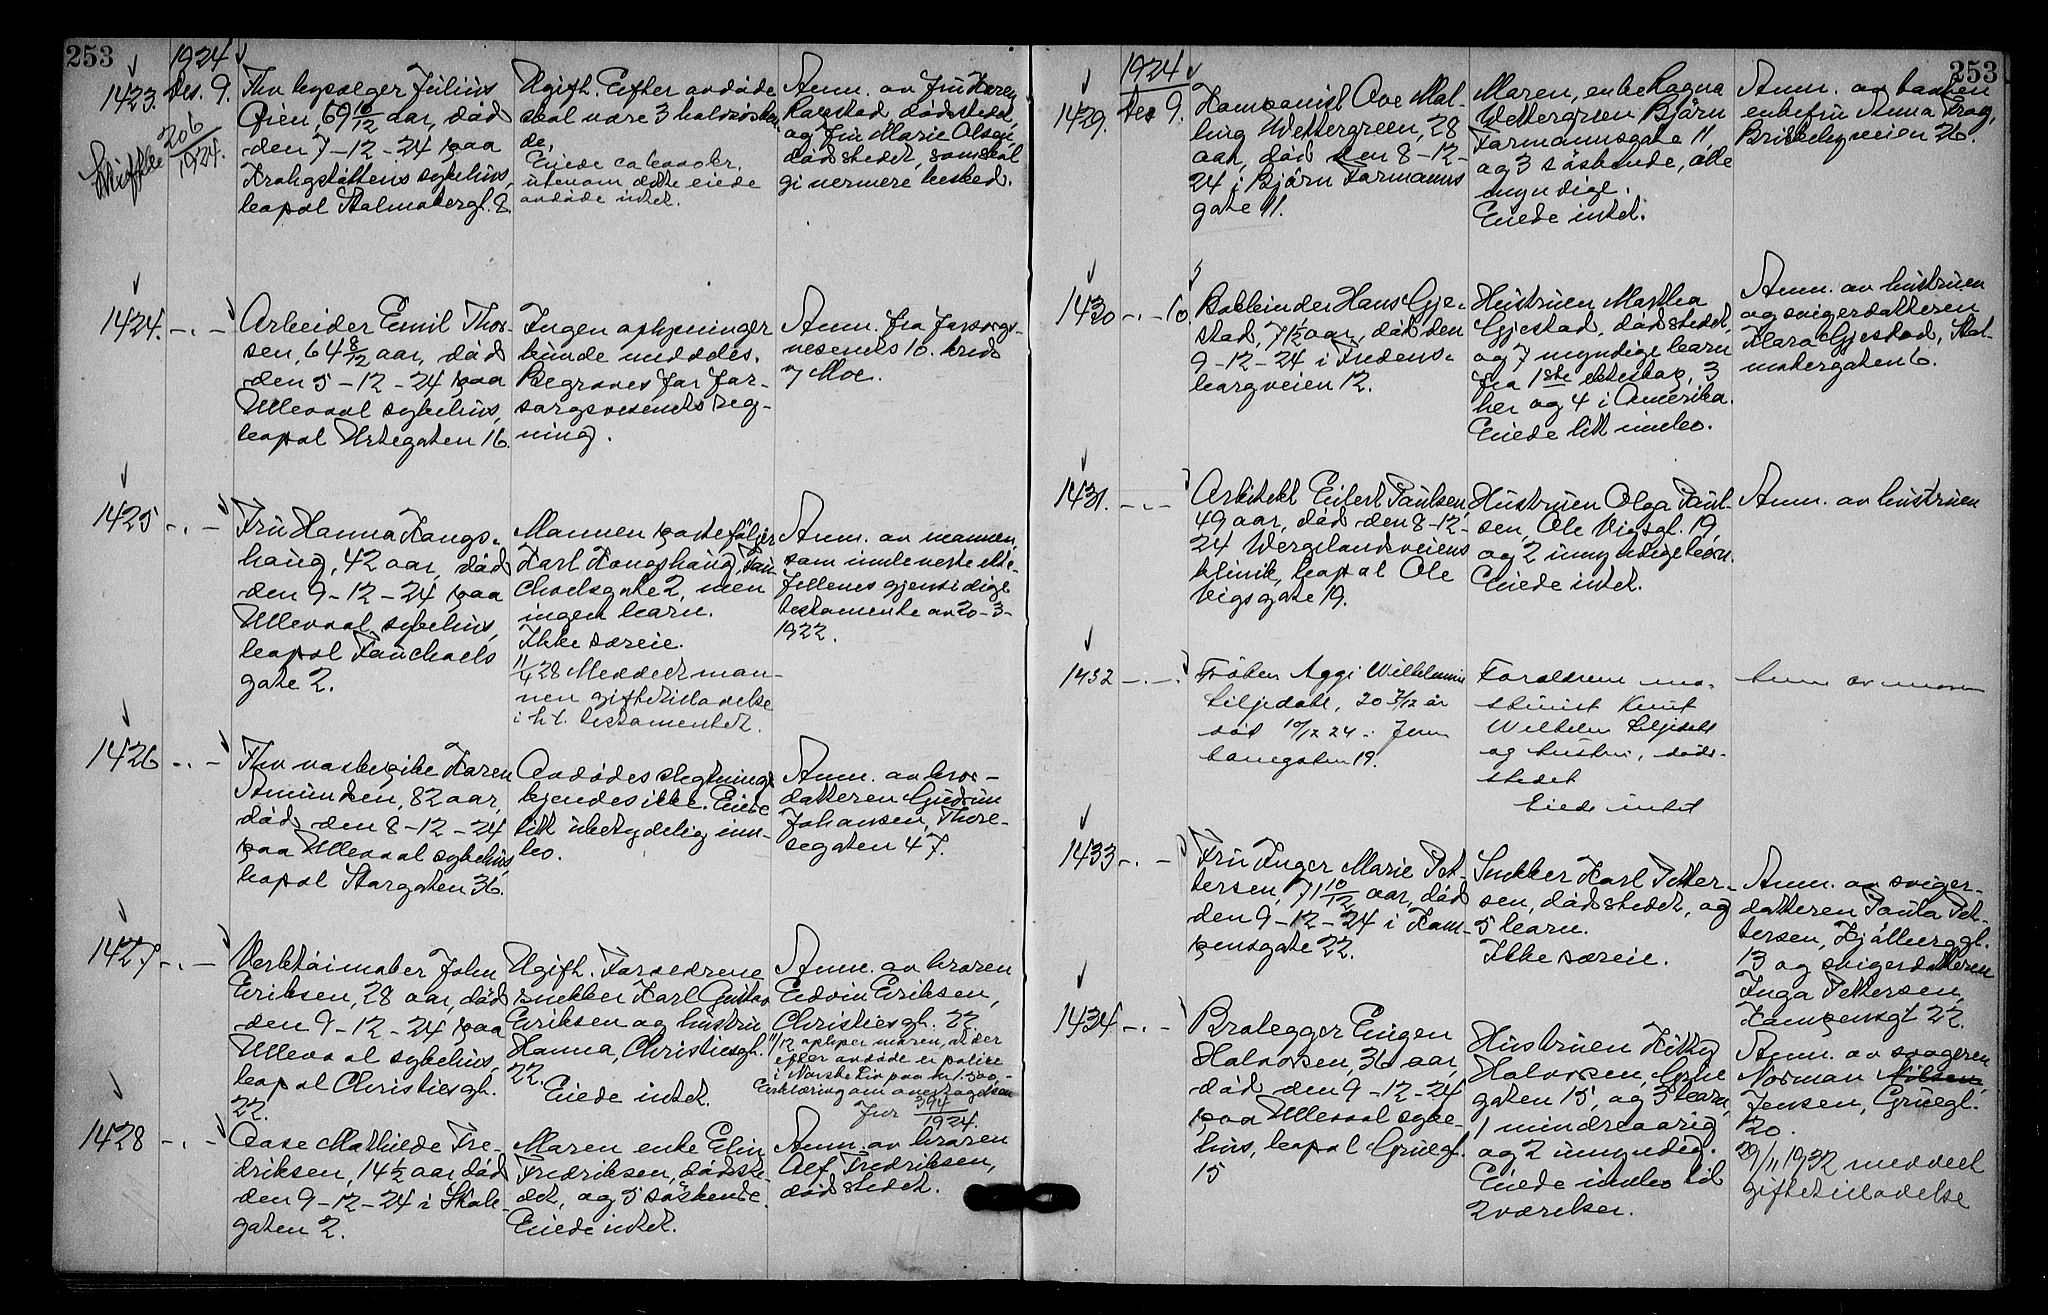 253
1924
1423. Des. 9.
Skiftle 206/1924.
Fhv bypselger Julius
Øien, 69 10/12 aar, død
den 7-12-24 paa
Krohgstøttens sykehus,
bopæl Malmøbergt. 8.
Ugift. Efter avdøde
skal være 3 halvsøsken-
de.
utenom dette eiede
avdøde intet.
Anm. av fru Karen
dødstedet,
og fru Marie Olsen,
dødstedet, som skal
gi nermere besked.
1424. -.-
Arbeider Emil Thor-
sen, 64 8/12 aar, død
den 5-12-24 paa
Ullevaal sykehus,
bopæl Urtegaten 16
Ingen oplysninger
kunde meddeles.
Begraves for for-
sorgsvesenets reg-
ning.
Anm. fra forsorgs-
vesenets 10. kreds
v/ Moe.
1425 -.-
Fru Hanna Kongs-
haug, 42 aar, død
den 9-12-24 paa
Ullevaal sykehus,
bopæl Fauchaels
gate 2.
Mannen portefølje
Karl Kongshaug, Fau-
chaelsgate 2, men
ingen barn.
Ikke særeie.
11/4 28 Meddelt man-
nen giftetilladelse
i h.t. testamentet.
Anm. av mannen,
som innleverte ekte-
fellenes gjensidige
testamente av 20-3-
1922.
1426 -.-
Fhv vaskepike Karen
Amundsen, 82 aar,
død den 8-12-24
paa Ullevaal sykehus,
bopæl Storgaten 36.
Avdødes slegtninge
kjendes ikke. Eiede
litt ubetydelig inn-
bo.
Anm. av bror-
datteren Gudrun
Johansen, Thore-
segaten 47.
1427 -.-
Verktøimaker John
Eriksen, 28 aar, død
den 9-12-24 paa
Ullevaal sykehus,
bopæl Christiesgt.
22.
Ugift. Forældrene
snekker Karl Gustav
Eriksen og hustru
Hanna, Christiesgt.
22.
Eiede intet.
Anm. av broren
Edvin Eriksen,
Christiesgt. 22
11/12 oplyser moren, at der
efter avdøde er polise
i Norske Liv paa kr 1.500-
Erklæring om overtagelsen
Jnr 394/1924.
1428 -.-
Aase Mathilde Fre-
driksen, 14½ aar, død
den 9-12-24 i Skole-
gaten 2.
Moren enke Elin
Fredriksen, dødste-
det, og 5 søskende.
Eiede intet.
Anm. av broren
Alf Fredriksen,
dødstedet.
253
1924
1429. Des 9.
Kompanist Ove Mal-
burg Wettergreen, 28
aar, død den 8-12-
24 i Bjørn Farmanns
gate 11.
Moren, enke Ragna
Wettergreen Bjørn
Farmannsgate 11
og 3 søskende, alle
myndige.
Eiede intet.
Anm. av tanten
enkefru Anna Krag,
Briskebyveien 26.
1430 -.- 10
Bokbinder Hans Gje-
stad, 71½ aar, død den
9-12-24 i Fredens-
borgveien 12.
Hustruen Martha
Gjestad, dødstedet,
og 7 myndige barn
fra 1ste ekteskap, 3
her og 4 i Amerika.
Eiede litt innbo.
Anm. av hustruen
og svigerdatteren
Klara Gjestad, Hol-
mbergaten 6.
1431. -.-
Arkitekt Eilert Paulsen,
49 aar, død den 8-12-
24 Wergelandsveiens
klinik, bopæl Ole
Vigsgate 19.
Hustruen Olga Paul-
sen, Ole Vigsgt. 19,
og 2 umyndige barn.
Eiede intet.
Anm. av hustruen
1432 -.-
Frøken Aggi Wilhelmine
Liljedahl, 20 3/12 år
død 10/12 24 i Jern
banegaten 19.
Forældrene ma-
skinist Knut
Wilhelm Liljedahl
og hustru, døds-
stedet
Eiede intet
Anm av moren
1433 -.-
Fru Inger Marie Pet-
tersen, 71 10/12 aar, død
den 9-12-24 i Kam-
pensgate 22.
Snekker Karl Petter-
sen, dødstedet, og
5 barn.
Ikke særeie.
Anm. av sviger-
datteren Paula Pet-
tersen, Kjølberggt.
13 og svigerdatteren
Inga Pettersen,
Kampensgt 22.
1434 -.-
Brolegger Eugen
Halvorsen, 36 aar,
død den 9-12-24
paa Ullevaal syke-
hus, bopæl Gruegt.
15
Hustruen Kitty
Halvorsen, Grue
gaten 15, og 3 barn,
1 mindreaarig
og 2 umyndig.
Eiede innbo til
2 værelser.
Anm. av svogeren
Norman Nilsen,
Jensen, Gruegt.
20.
29/11 1932 meddelt
giftetilladelse